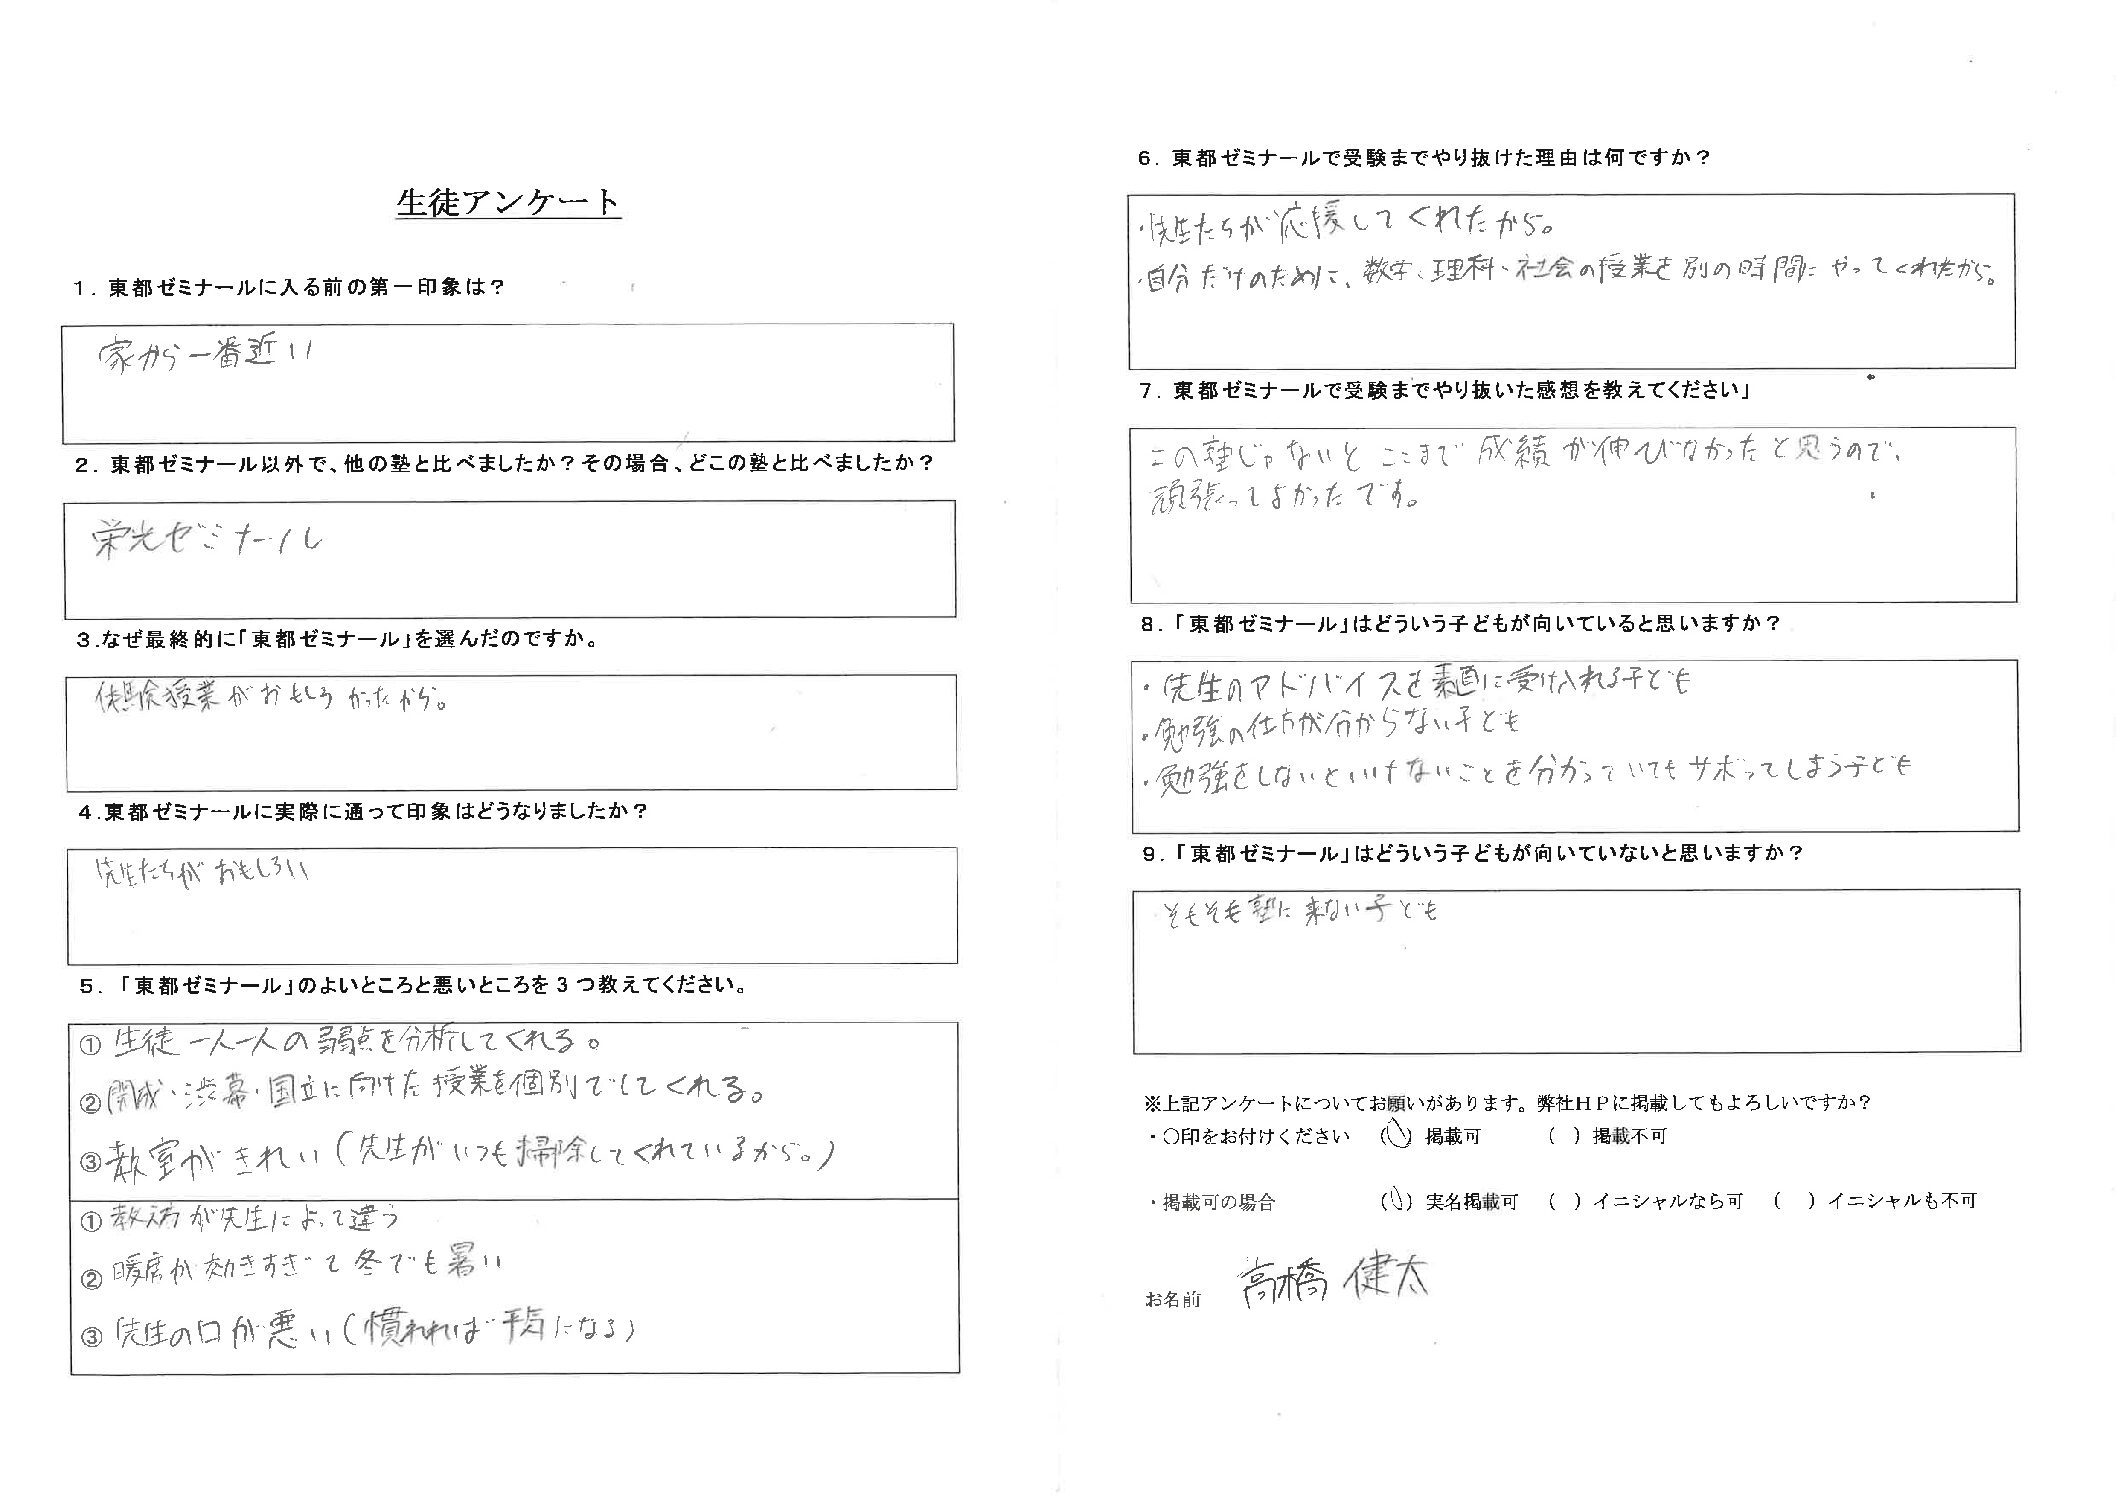 生徒アンケート
1. 東都ゼミナールに入る前の第一印象は？
家から一番近い
2. 東都ゼミナール以外で、他の塾と比べましたか？その場合、どこの塾と比べましたか？
栄光ゼミナール
3.なぜ最終的に「東都ゼミナール」を選んだのですか。
体験授業がおもしろかったから。
4.東都ゼミナールに実際に通って印象はどうなりましたか？
先生たちがおもしろい
5. 「東都ゼミナール」のよいところと悪いところを3つ教えてください。
① 生徒一人一人の弱点を分析してくれる。
② 開成・渋幕・国立に向けた授業を個別でしてくれる。
③ 教室がきれい(先生がいつも掃除してくれているから。)
① 教え方が先生によって違う
② 暖房が効きすぎて冬でも暑い
③ 先生の口が悪い(慣れれば平気になる)
6. 東都ゼミナールで受験までやり抜けた理由は何ですか？
・先生たちが応援してくれたから。
・自分だけのために、数学・理科・社会の授業を別の時間にやってくれたから。
7. 東都ゼミナールで受験までやり抜いた感想を教えてください」
この塾じゃないとここまで成績が伸びなかったと思うので、
頑張ってよかったです。
8.「東都ゼミナール」はどういう子どもが向いていると思いますか？
・先生のアドバイスを素直に受け入れる子ども
・勉強の仕方が分からない子ども
・勉強をしないといけないことを分かっていてもサボってしまう子ども
9.「東都ゼミナール」はどういう子どもが向いていないと思いますか？
そもそも塾に来ない子ども
※上記アンケートについてお願いがあります。弊社HPに掲載してもよろしいですか？
・〇印をお付けください (〇) 掲載可 ( ) 掲載不可
・掲載可の場合 (〇) 実名掲載可 ( ) イニシャルなら可 ( ) イニシャルも不可
お名前 高橋 健太